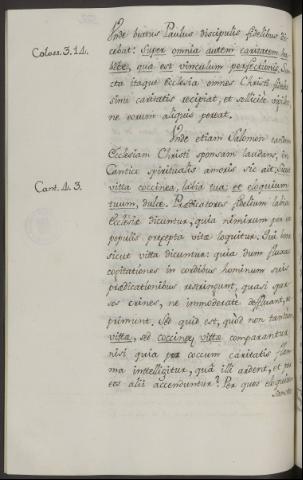 Unde beatus Paulus discipulis fidelibus di-
Coloss. 3. 14.
cebat: Super omnia autem caritatem ha-
bete, qua est vinculum perfectionis. San-
cta itaque Ecclesia omnes Christi fideles
sinu caritatis recipiat, et sollicite vigilet,
ne eorum aliquis pereat.
Unde etiam Salomon eandem
Ecclesiam Christi sponsam laudans, in
Cantico spiritualis amoris sic ait: Sicut
Cant. 4. 3.
vitta coccinea, labia tua; et eloquium
tuum, dulce. Prædicatores fidelium labia
Ecclesiæ dicuntur, quia nimirum per eos
populis præcepta vitæ loquitur. Qui bene
sicut vitta dicuntur: quia dum fluxas
cogitationes in cordibus hominum suis
prædicationibus restringunt, quasi spar-
sos crines, ne immoderate defluant, re-
primunt. Sed quid est, quod non tantum
vittæ, sed coccineæ vittæ comparantur
nisi quia per coccum caritatis flam-
ma intelligitur, quâ illi ardent, et per
eos alii accenduntur? Per quos eloquium